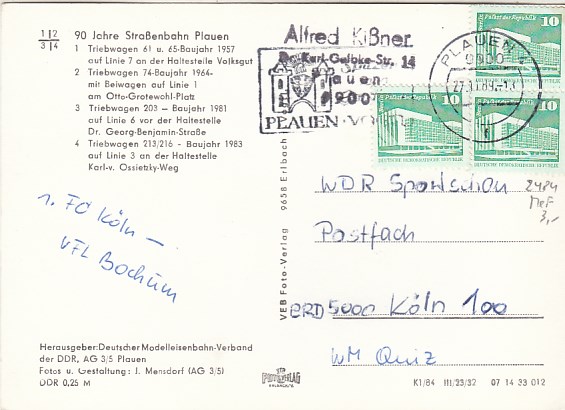 1|2
3|4
90 Jahre Straßenbahn Plauen
1 Triebwagen 61 u. 65-Baujahr 1957
auf Linie 7 an der Haltestelle Volksgut
2 Triebwagen 74-Baujahr 1964-
mit Beiwagen auf Linie 1
am Otto-Grotewohl-Platz
3 Triebwagen 203 - Baujahr 1981
auf Linie 6 vor der Haltestelle
Dr. Georg-Benjamin-Straße
4 Triebwagen 213/216 - Baujahr 1983
auf Linie 3 an der Haltestelle
Karl-v. Ossietzky-Weg
1. FC Köln –
VFL Bochum
Herausgeber: Deutscher Modelleisenbahn-Verband
der DDR, AG 3/5 Plauen
Fotos u. Gestaltung: J. Mensdorf (AG 3/5)
DDR 0,25 M
VEB Foto-Verlag 9658 Erlbach
Alfred Kißner
Dr. Karl-Gelbke-Str. 14
Plauen
9900
PLAUEN
PLAUEN
9900
Palast der Republik 10
DEUTSCHE DEMOKRATISCHE REPUBLIK
Palast der Republik 10
DEUTSCHE DEMOKRATISCHE REPUBLIK
Palast der Republik 10
DEUTSCHE DEMOKRATISCHE REPUBLIK
WDR Sportschau
Postfach
BRD 5000 Köln 100
WM Quiz
2484
MeF
3,-
K1/84 111/23/32 07 14 33 012